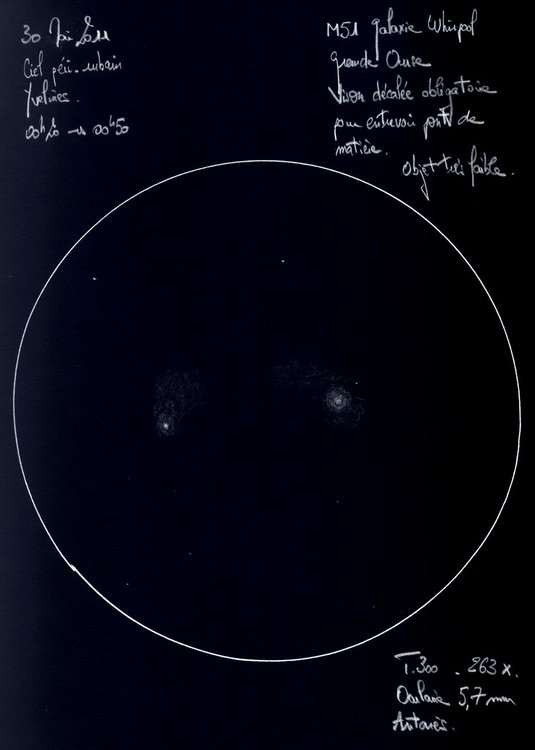 30 Mai 2011
Ciel péri-urbain
Yvelines.
00h20 → 00h50
M51 galaxie Whirpol
Grande Ourse
Vision décalée obligatoire
pour entrevoir pont de
matière.
Objet très faible.
T.300 - 263 x.
Oculaire 5,7 mm
Antarès.